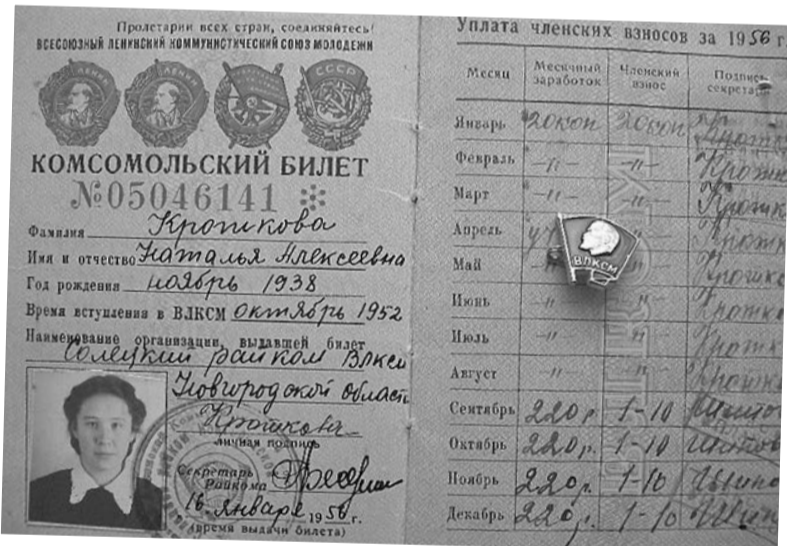 Пролетарии всех стран, соединяйтесь!
ВСЕСОЮЗНЫЙ ЛЕНИНСКИЙ КОММУНИСТИЧЕСКИЙ СОЮЗ МОЛОДЕЖИ
ЛЕНИН
ЛЕНИН
СССР
КОМСОМОЛЬСКИЙ БИЛЕТ
№05046141
Фамилия Кроткова
Имя и отчество Наталья Алексеевна
Год рождения ноябрь 1938
Время вступления в ВЛКСМ октябрь 1952
Наименование организации, выдавшей билет
Солецкий райком Влксм
Новгородской области
Кроткова
личная подпись
Секретарь
Райкома
16 января 1956 г.
(время выдачи билета)
Уплата членских взносов за 1956 г.
Месяц Месячный заработок Членский взнос Подпись секретаря
Январь 20коп 20коп
Февраль -"- -"-
Март -"- -"-
Апрель -"-
Май -"-
Июнь -"- -"-
Июль -"- -"-
Август -"- -"-
Сентябрь 220р. 1-10
Октябрь 220р. 1-10
Ноябрь 220р. 1-10
Декабрь 220р. 1-10
ВЛКСМ